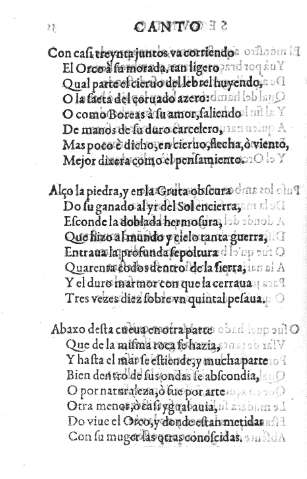 CANTO
Con casi treynta juntos va corriendo
El Orco à su morada, tan ligero
Qual parte el cieruo del lebrel huyendo,
O la saeta del coruado azero:
O como Boreas à su amor, saliendo
De manos de su duro carcelero,
Mas poco è dicho, en cieruo, flecha, ò viento,
Mejor dixera como el pensamiento.
Alço la piedra, y en la Gruta obscura
Do su ganado al yr del Sol encierra,
Esconde la doblada hermosura,
Que hizo al mundo y cielo tanta guerra,
Entraua la profunda sepoltura
Quarenta codos dentro de la sierra,
Y el duro marmor con que la cerraua
Tres vezes diez sobre vn quintal pesaua.
Abaxo desta cueua en otra parte
Que de la misma roca se hazia,
Y hasta el mar se estiende, y mucha parte
Bien dentro de sus ondas se abscondia,
O por naturaleza, ò fue por arte
Otra menor, ò casi ygual auia,
Do viue el Orco, y donde estan metidas
Con su muger las otras conoscidas.